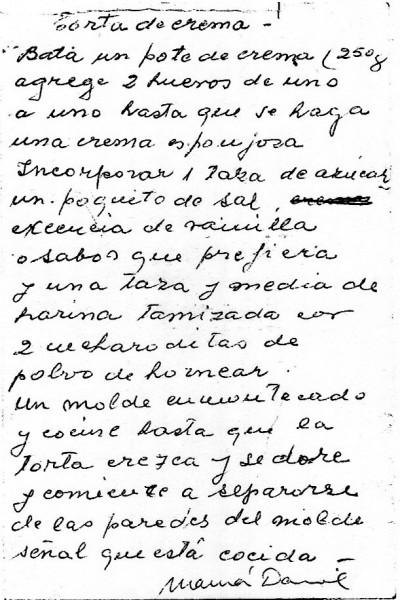 Torta de crema -
Bata un pote de crema (250g
agrege 2 huevos de uno
a uno hasta que se haga
una crema espoujosa
Incorporar 1 taza de azúcar
un poquito de sal,
excencia de vainilla
o sabor que prefiera
y una taza y media de
harina tamizada con
2 cucharaditas de
polvo de hornear.
un molde enmantecado
y cocine hasta que la
torta crezca y se dore
y comience a separarse
de las paredes del molde
señal que está cocida -
Mamá